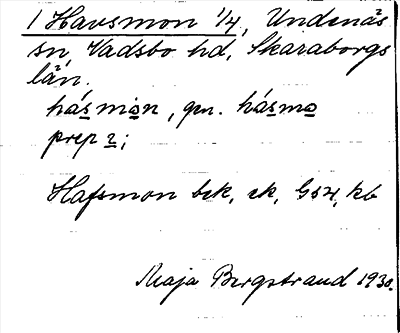 1 Havsmon 1/4, Undenäs
sn Vadsbo hd, Skaraborgs
län.
hásmo̠n, gm. hásmo̠
prep 2;
Hafsmon bek, ek, G54, kb
Maja Bergstrand 1930.